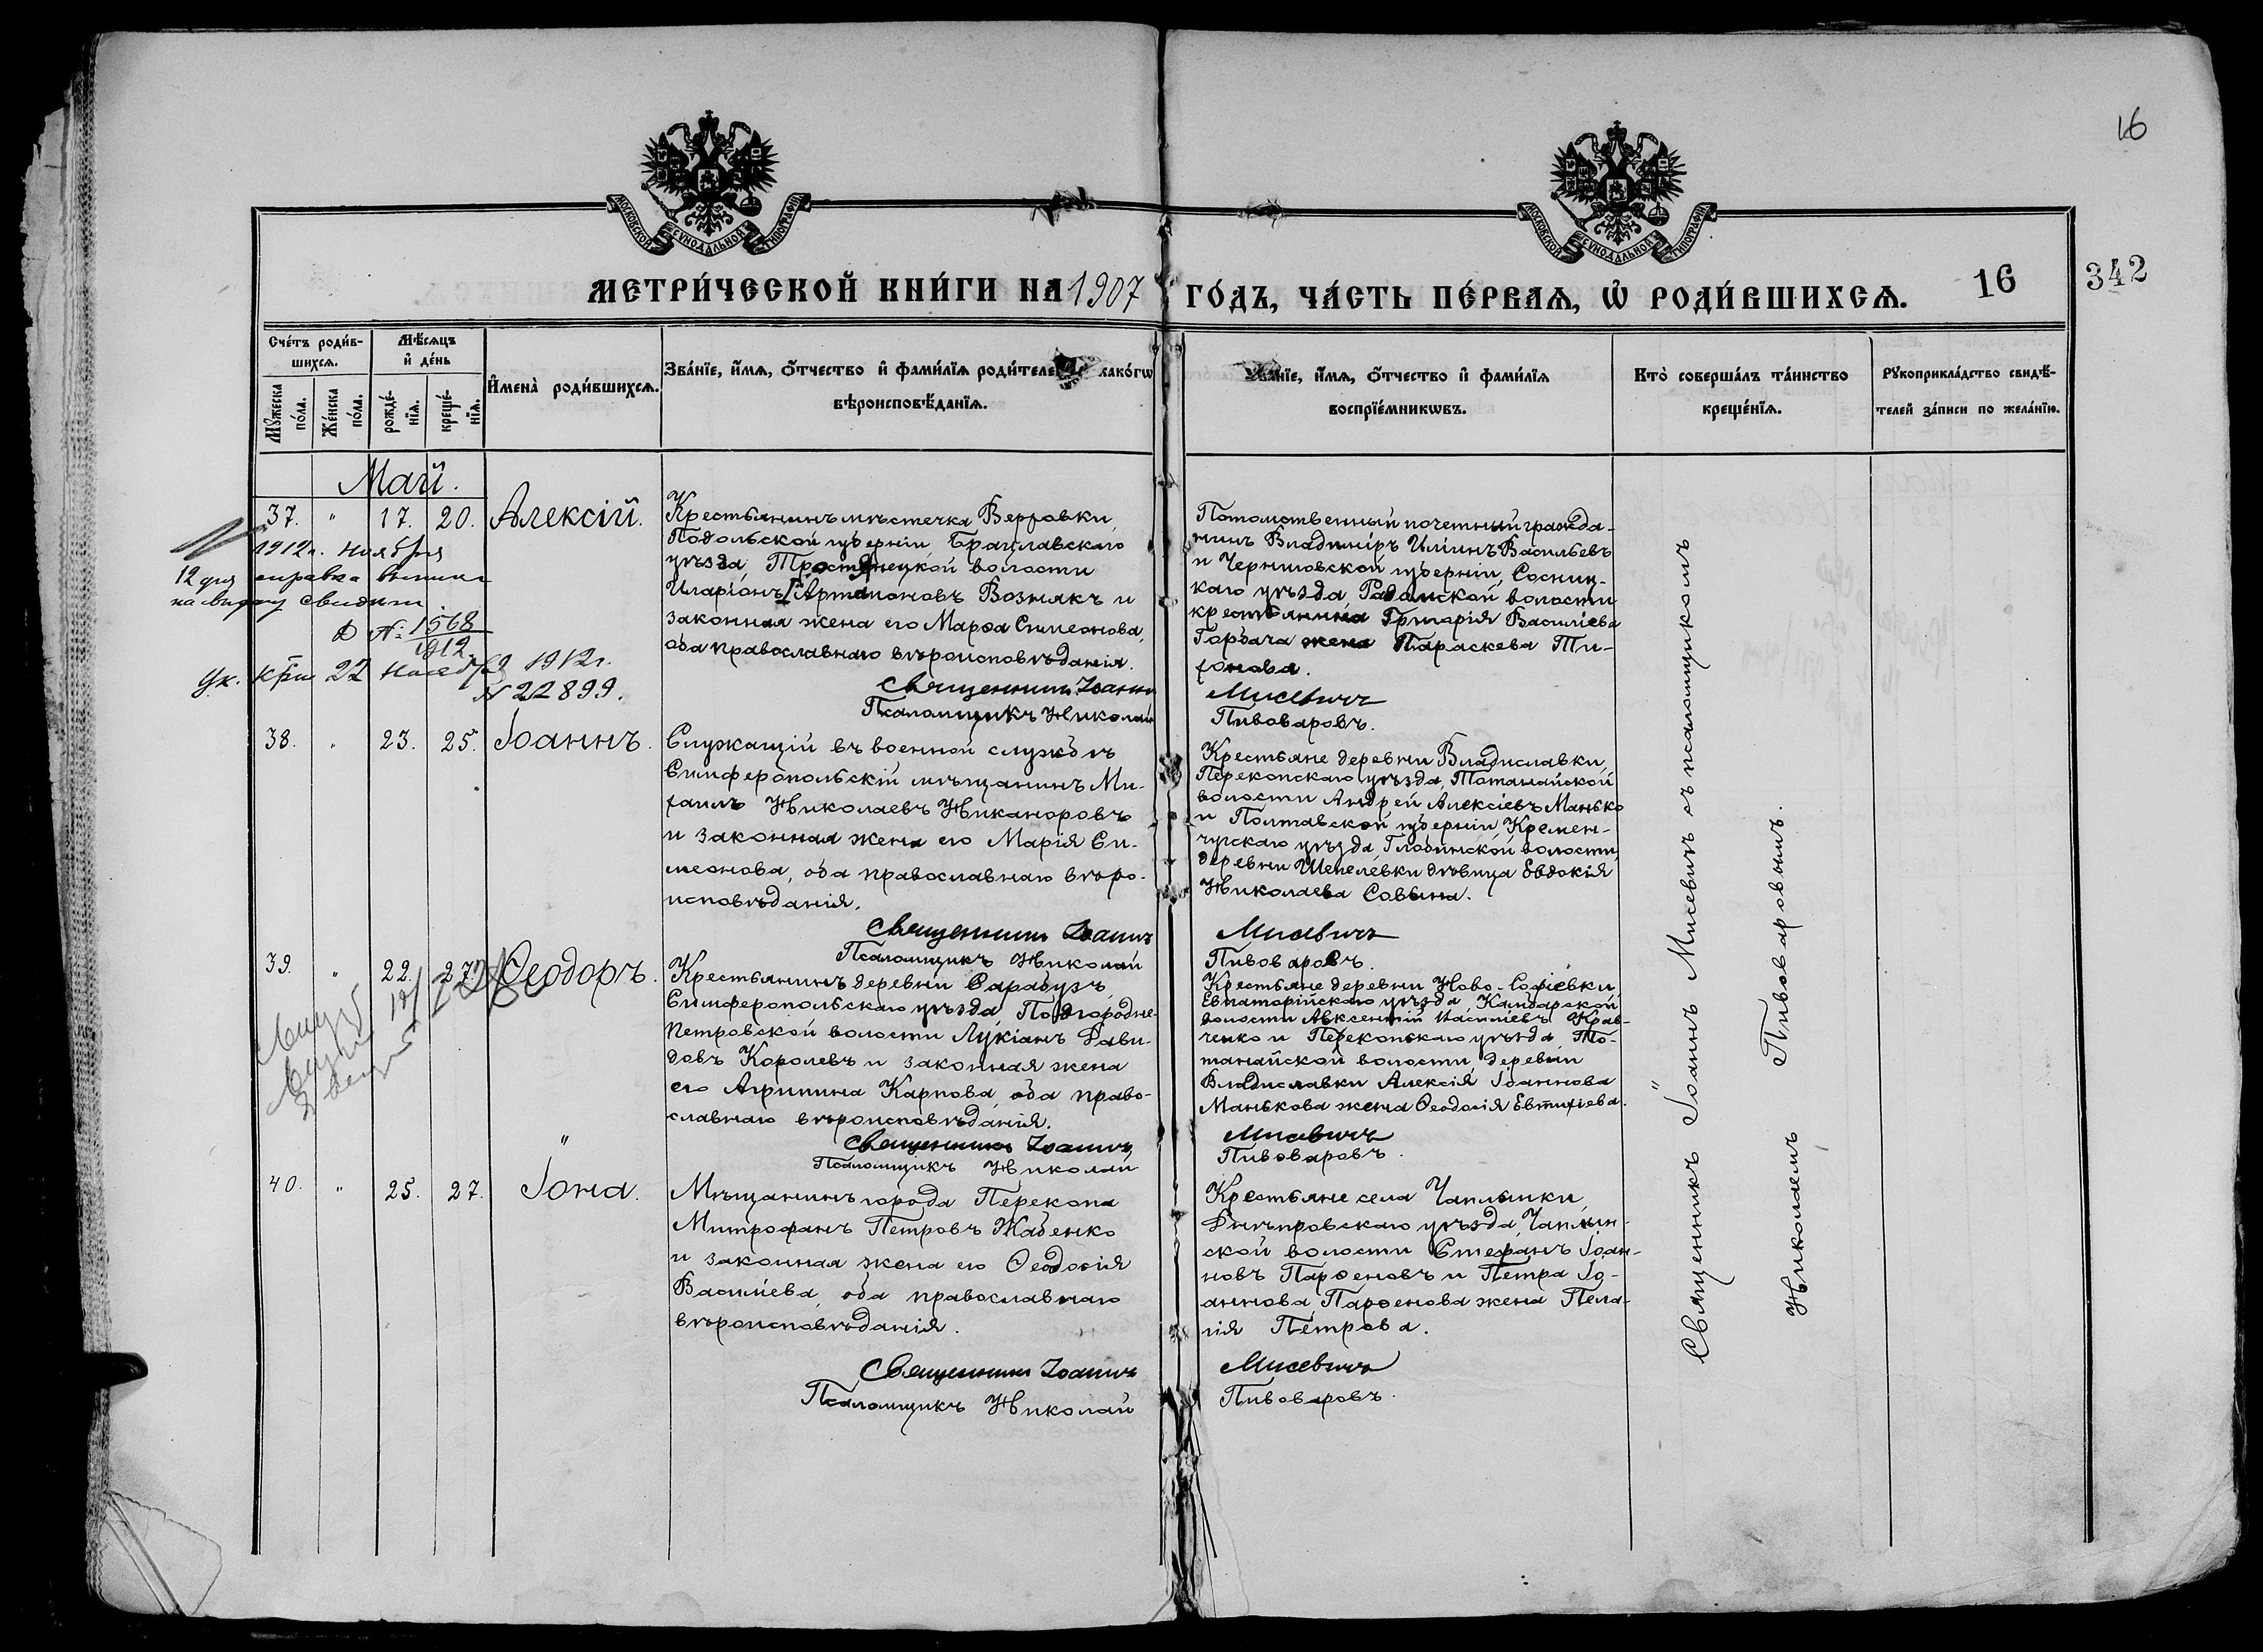 16
МОСКОВСКОЙ СѴНОДАЛЬНОЙ ТИПОГРАФІИ
МОСКОВСКОЙ СѴНОДАЛЬНОЙ ТИПОГРАФІИ
МЕТРИ́ЧЕСКОЙ КНИ́ГИ НА 1907 ГО́ДЪ, ЧА́СТЬ ПЕ́РВАѦ, Ѡ҆ РОДИ́ВШИХСѦ.
16
342
Сче́тъ роди́в-
шихсѧ.
Мꙋ́жеска по́ла.
Же́нска по́ла.
Мѣ́сѧцъ
и҆ де́нь
рожде́-
нїѧ.
креще́-
нїѧ.
И҆мена̀ роди́вшихсѧ.
Зва́нїе, и҆́мѧ, ѻ҆́тчество и҆ фами́лїѧ роди́теле како́гѡ
вѣроисповѣ́данїѧ.
Зва́нїе, и҆́мѧ, ѻ҆́тчество и҆ фами́лїѧ
воспрїе́мникѡвъ.
Кто̀ соверша́лъ та́инство
креще́нїѧ.
Рꙋкоприкла́дство свидѣ́-
телей за́писи по жела́нїю.
Май.
37. " 17. 20. Алексій.
Крестьянинъ мѣстечка Верховки,
Подольской губерніи, Брацлавскаго
уѣзда, Тростянецкой волости
Иларіонъ Артамоновъ Вознякъ и
законная жена его Марѳа Симеонова,
оба православнаго вѣроисповѣданія.
Священникъ Іоаннъ
Псаломщикъ Николай
Потомственный почетный гражда-
нинъ Владиміръ Иліинъ Васильевъ
и Черниговской губерніи, Сосниц-
каго уѣзда, волости
крестьянина Григорія Василіева
Горбача жена Параскева Ти-
хонова.
Мисевичъ
Пивоваровъ.
1912 г. Ноября
12 дня справка
на выдачу
№ 1568
1912
Ук. 22 Ноября 1912 г.
№ 22899.
38. " 23. 25. Іоаннъ.
Служащій въ военной службѣ
Симферопольскій мѣщанинъ Ми-
хаилъ Николаевъ Никаноровъ
и законная жена его Марія Си-
меонова, оба православнаго вѣро-
исповѣданія.
Священникъ Іоаннъ
Псаломщикъ Николай
Крестьяне деревни Владиславки,
Перекопскаго уѣзда, Тотанайской
волости Андрей Алексіевъ Манько
и Полтавской губерніи, Кремен-
чугскаго уѣзда, Глобинской волости,
деревни Шепелевки дѣвица Евдокія
Николаева Совына.
Мисевичъ
Пивоваровъ.
39. " 22. 27. Ѳеодоръ.
Крестьянинъ деревни Сарабузъ,
Симферопольскаго уѣзда, Подгородне-
Петровской волости Лукіанъ Дави-
довъ Королевъ и законная жена
его Агрипина Карпова, оба право-
славнаго вѣроисповѣданія.
Священникъ Іоаннъ
Псаломщикъ Николай
Крестьяне деревни Ново-Софіевки,
Евпаторійскаго уѣзда, Камбарской
волости Авксентій Василіевъ Крав-
ченко и Перекопскаго уѣзда, То-
танайской волости, деревни
Владиславки Алексія Іоаннова
Манькова жена Ѳеодосія Евтихіева.
Мисевичъ
Пивоваровъ.
"
40. " 25. 27. Іона.
Мѣщанинъ города Перекопа
Митрофанъ Петровъ Жабенко
и законная жена его Ѳеодосія
Василіева, оба православнаго
вѣроисповѣданія.
Священникъ Іоаннъ
Псаломщикъ Николай
Крестьяне села Чаплынки,
Днѣпровскаго уѣзда, Чаплын-
ской волости Стефанъ Іоан-
новъ Парѳеновъ и Петра Іо-
аннова Парѳенова жена Пела-
гія Петрова.
Мисевичъ
Пивоваровъ.
Священникъ Іоаннъ Мисевичъ съ псаломщикомъ
Николаемъ Пивоваровымъ.